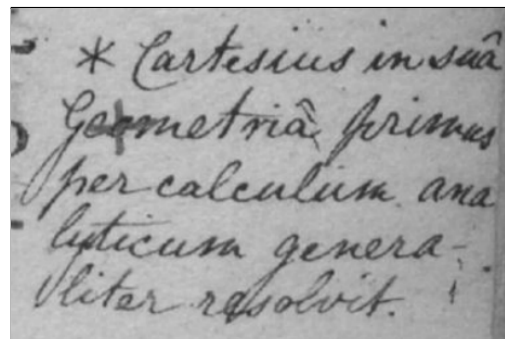 * Cartesius in suâ
Geometriâ primus
per calculum ana
lyticum genera-
liter resolvit.